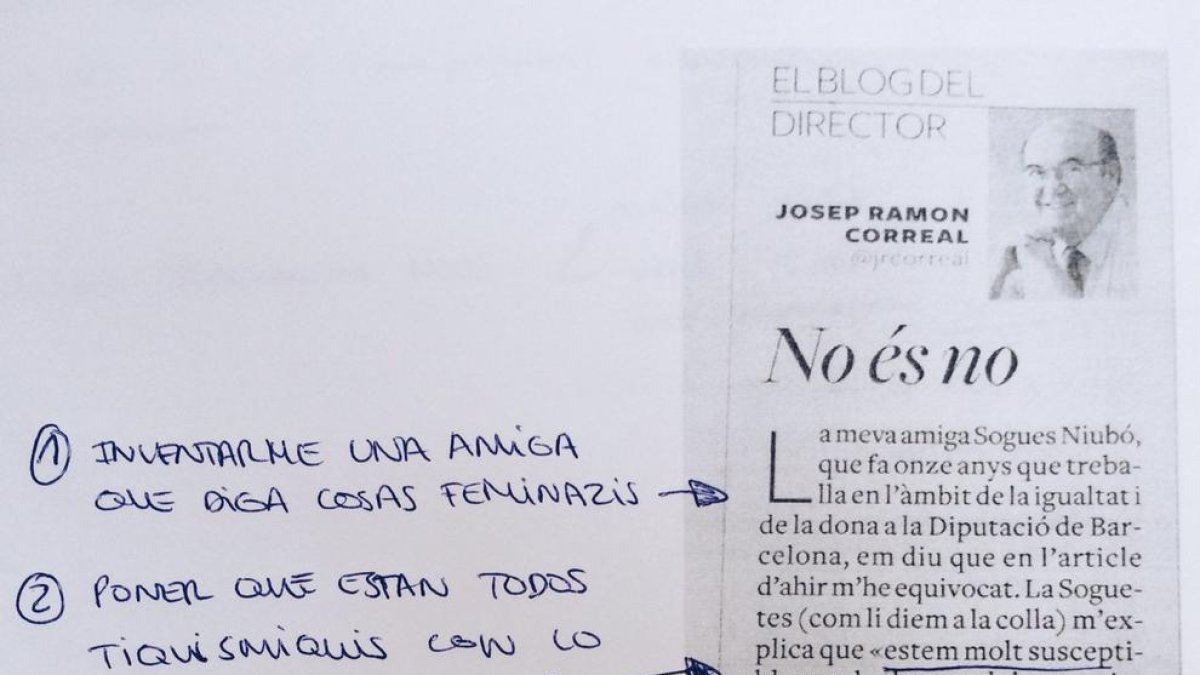 EL BLOG DEL
DIRECTOR
JOSEP RAMON
CORREAL
@jrcorreal
No és no
La meva amiga Sogues Niubó,
que fa onze anys que treba-
lla en l'àmbit de la igualtat i
de la dona a la Diputació de Bar-
celona, em diu que en l'article
d'ahir m'he equivocat. La Sogue-
tes (com li diem a la colla) m'ex-
plica que «estem molt suscepti-
① INVENTARME UNA AMIGA
QUE DIGA COSAS FEMINAZIS
② PONER QUE ESTAN TODOS
TIQUISMIQUIS CON LO